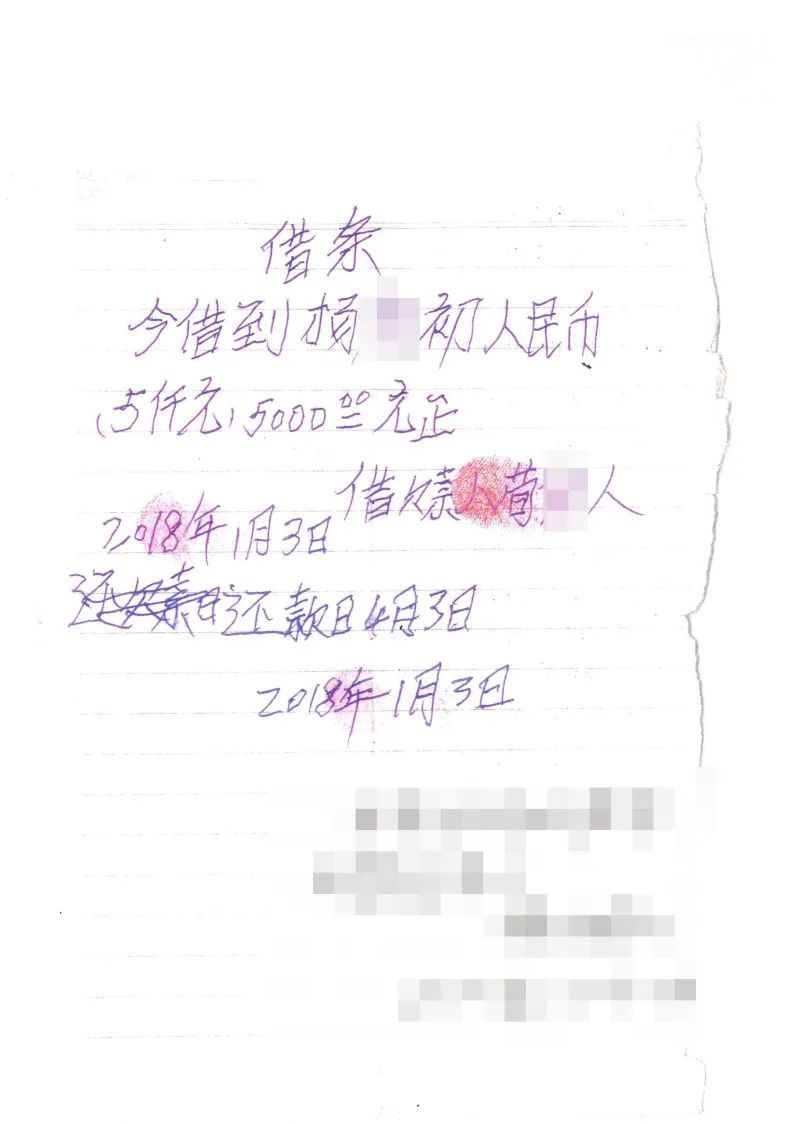 借条
今借到杨 初人民币
(5仟元)5000.00元正
借款人苟 人
2018年1月3日
还款日4月3日
2018年1月3日